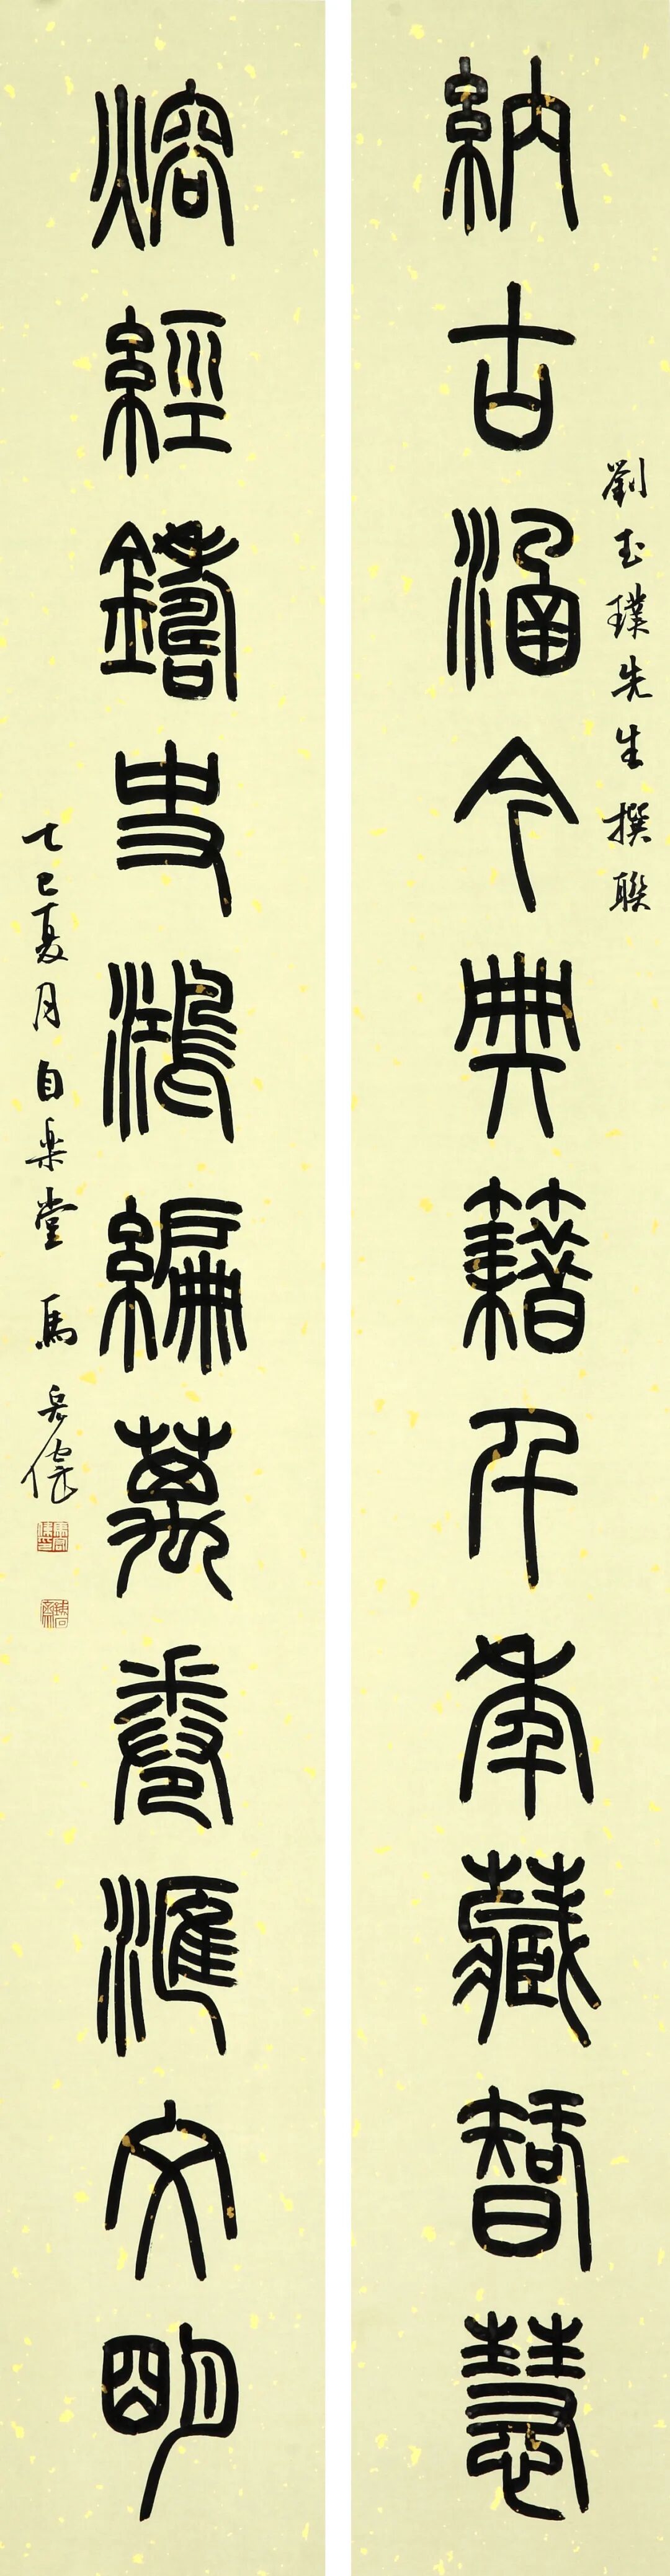 劉玉璞先生撰聯
納古涵今典籍千年藏智慧
熔經鑄史鴻編萬卷匯文明
乙巳夏月自樂堂馬